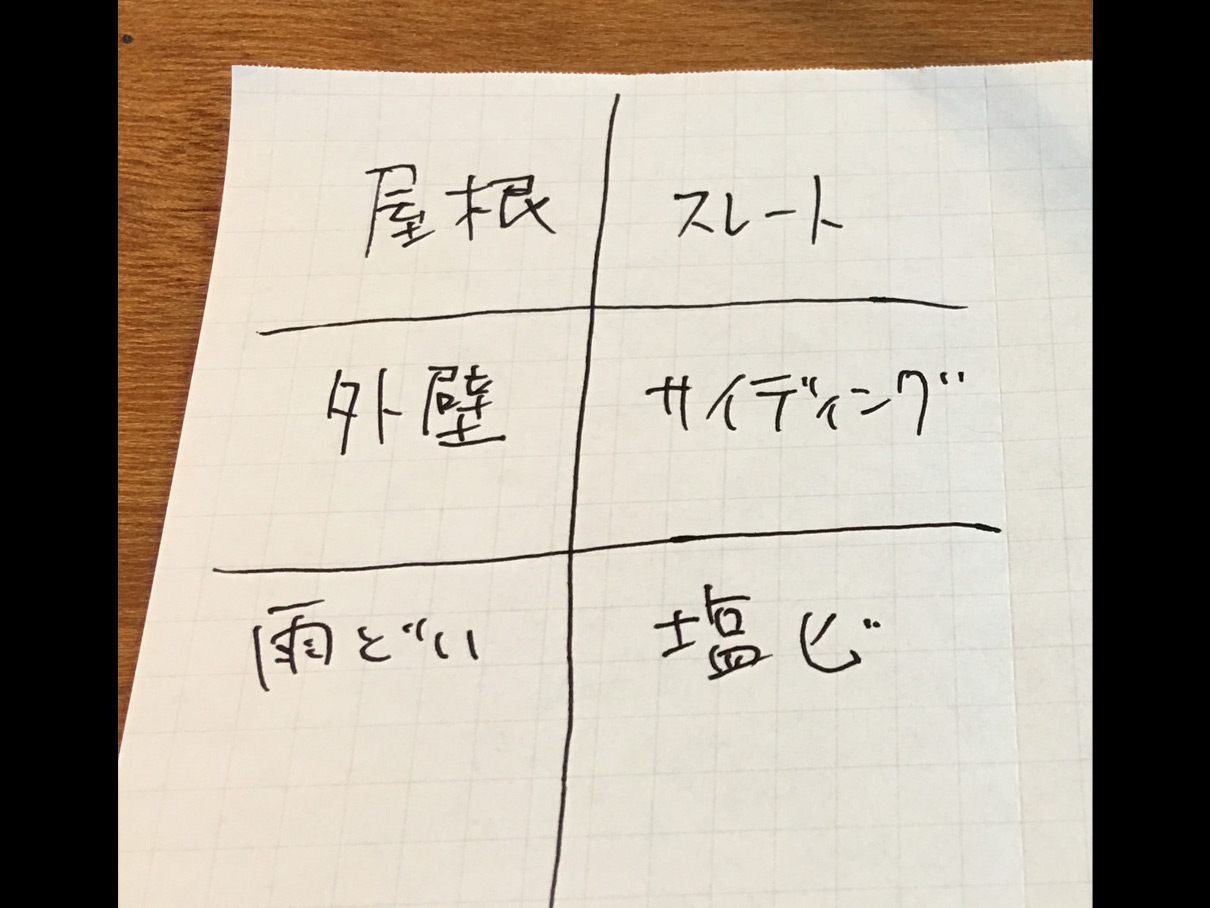 屋根 スレート
外壁 サイディング
雨どい 塩ビ